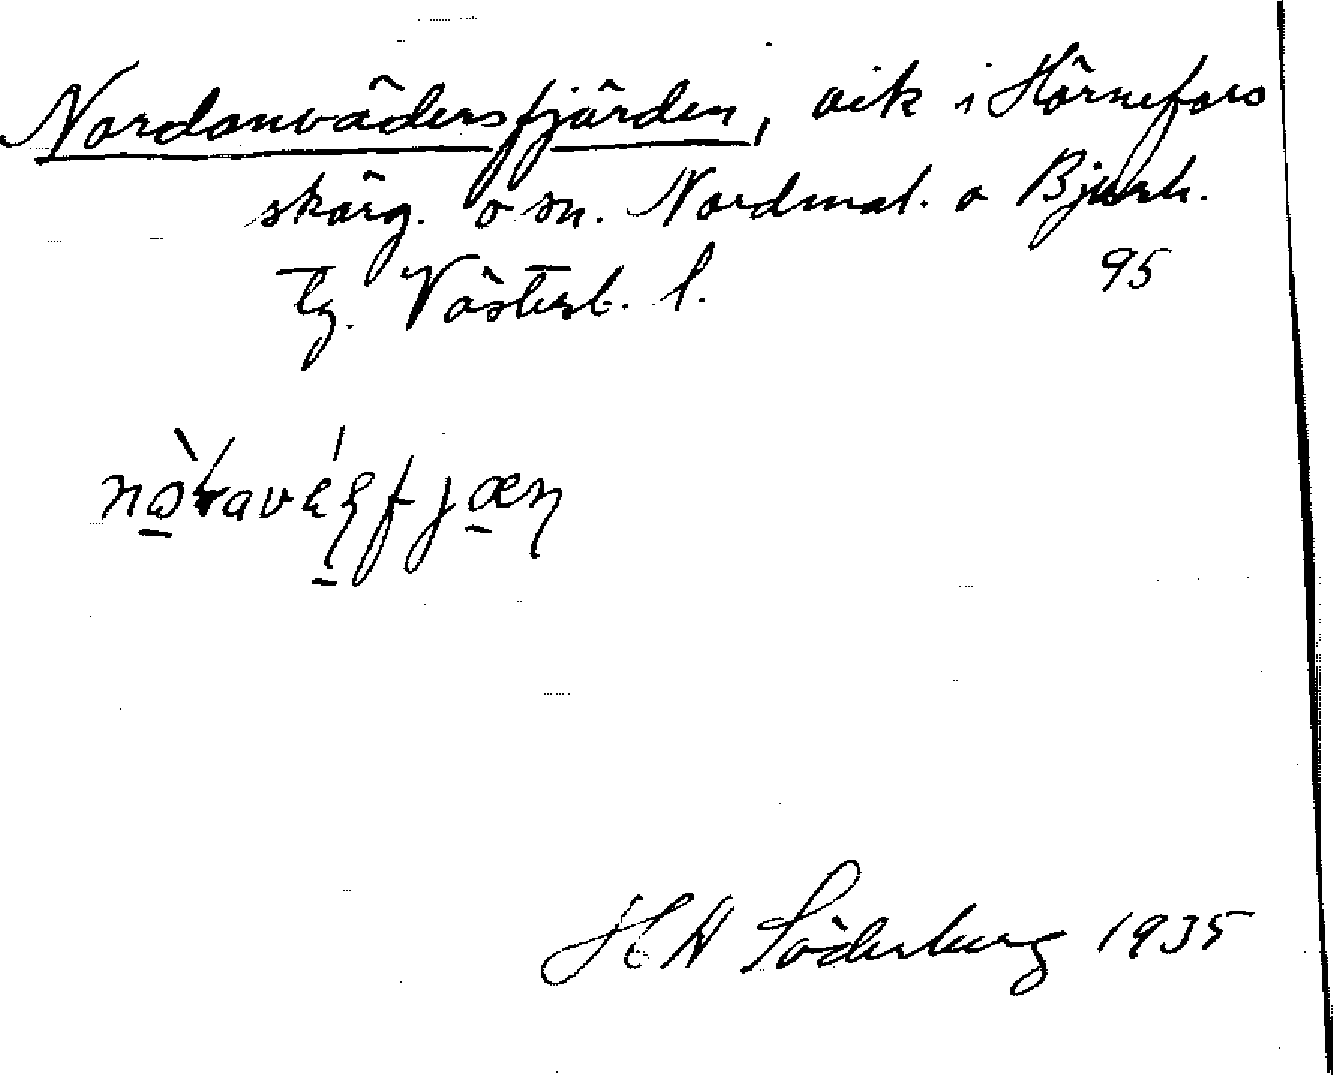 Nordanvädersfjärden, vik i Hörnefors
skärg. o sn. Nordmal. o Bjurh.
tg. Västerb. l. 95
H A Söderberg 1935